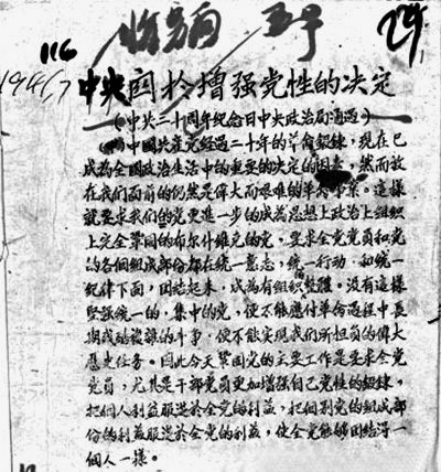 29
116
194
中央関於增强党性的决定
（中共二十周年紀念日中央政治局通过）
中國共產党経過二十年的革命鍛鍊，現在已
成為全國政治生活中的重要的决定的因素，然而放
在我们面前的仍然是偉大而艰难的革命事業。這樣
就要求我们的党更進一步的成為思想上政治上組織
上完全鞏固的布尔什維克的党，要求全党党員和党
的各個組成部份都在統一意志，統一行动，和統一
紀律下面，团結起来，成為有組織的整體。没有這樣
堅强統一的，集中的党，便不能應付革命過程中長
期残酷複雜的斗争，便不能实現我们所担負的偉大
歷史任务。因此今天鞏固党的主要工作是要求全党
党員，尤其是干部党員更加增强自己党性的鍛鍊，
把個人利益服從於全党的利益，把個别党的組成部
份的利益服從於全党的利益，使全党能够团結得一
個人一樣。